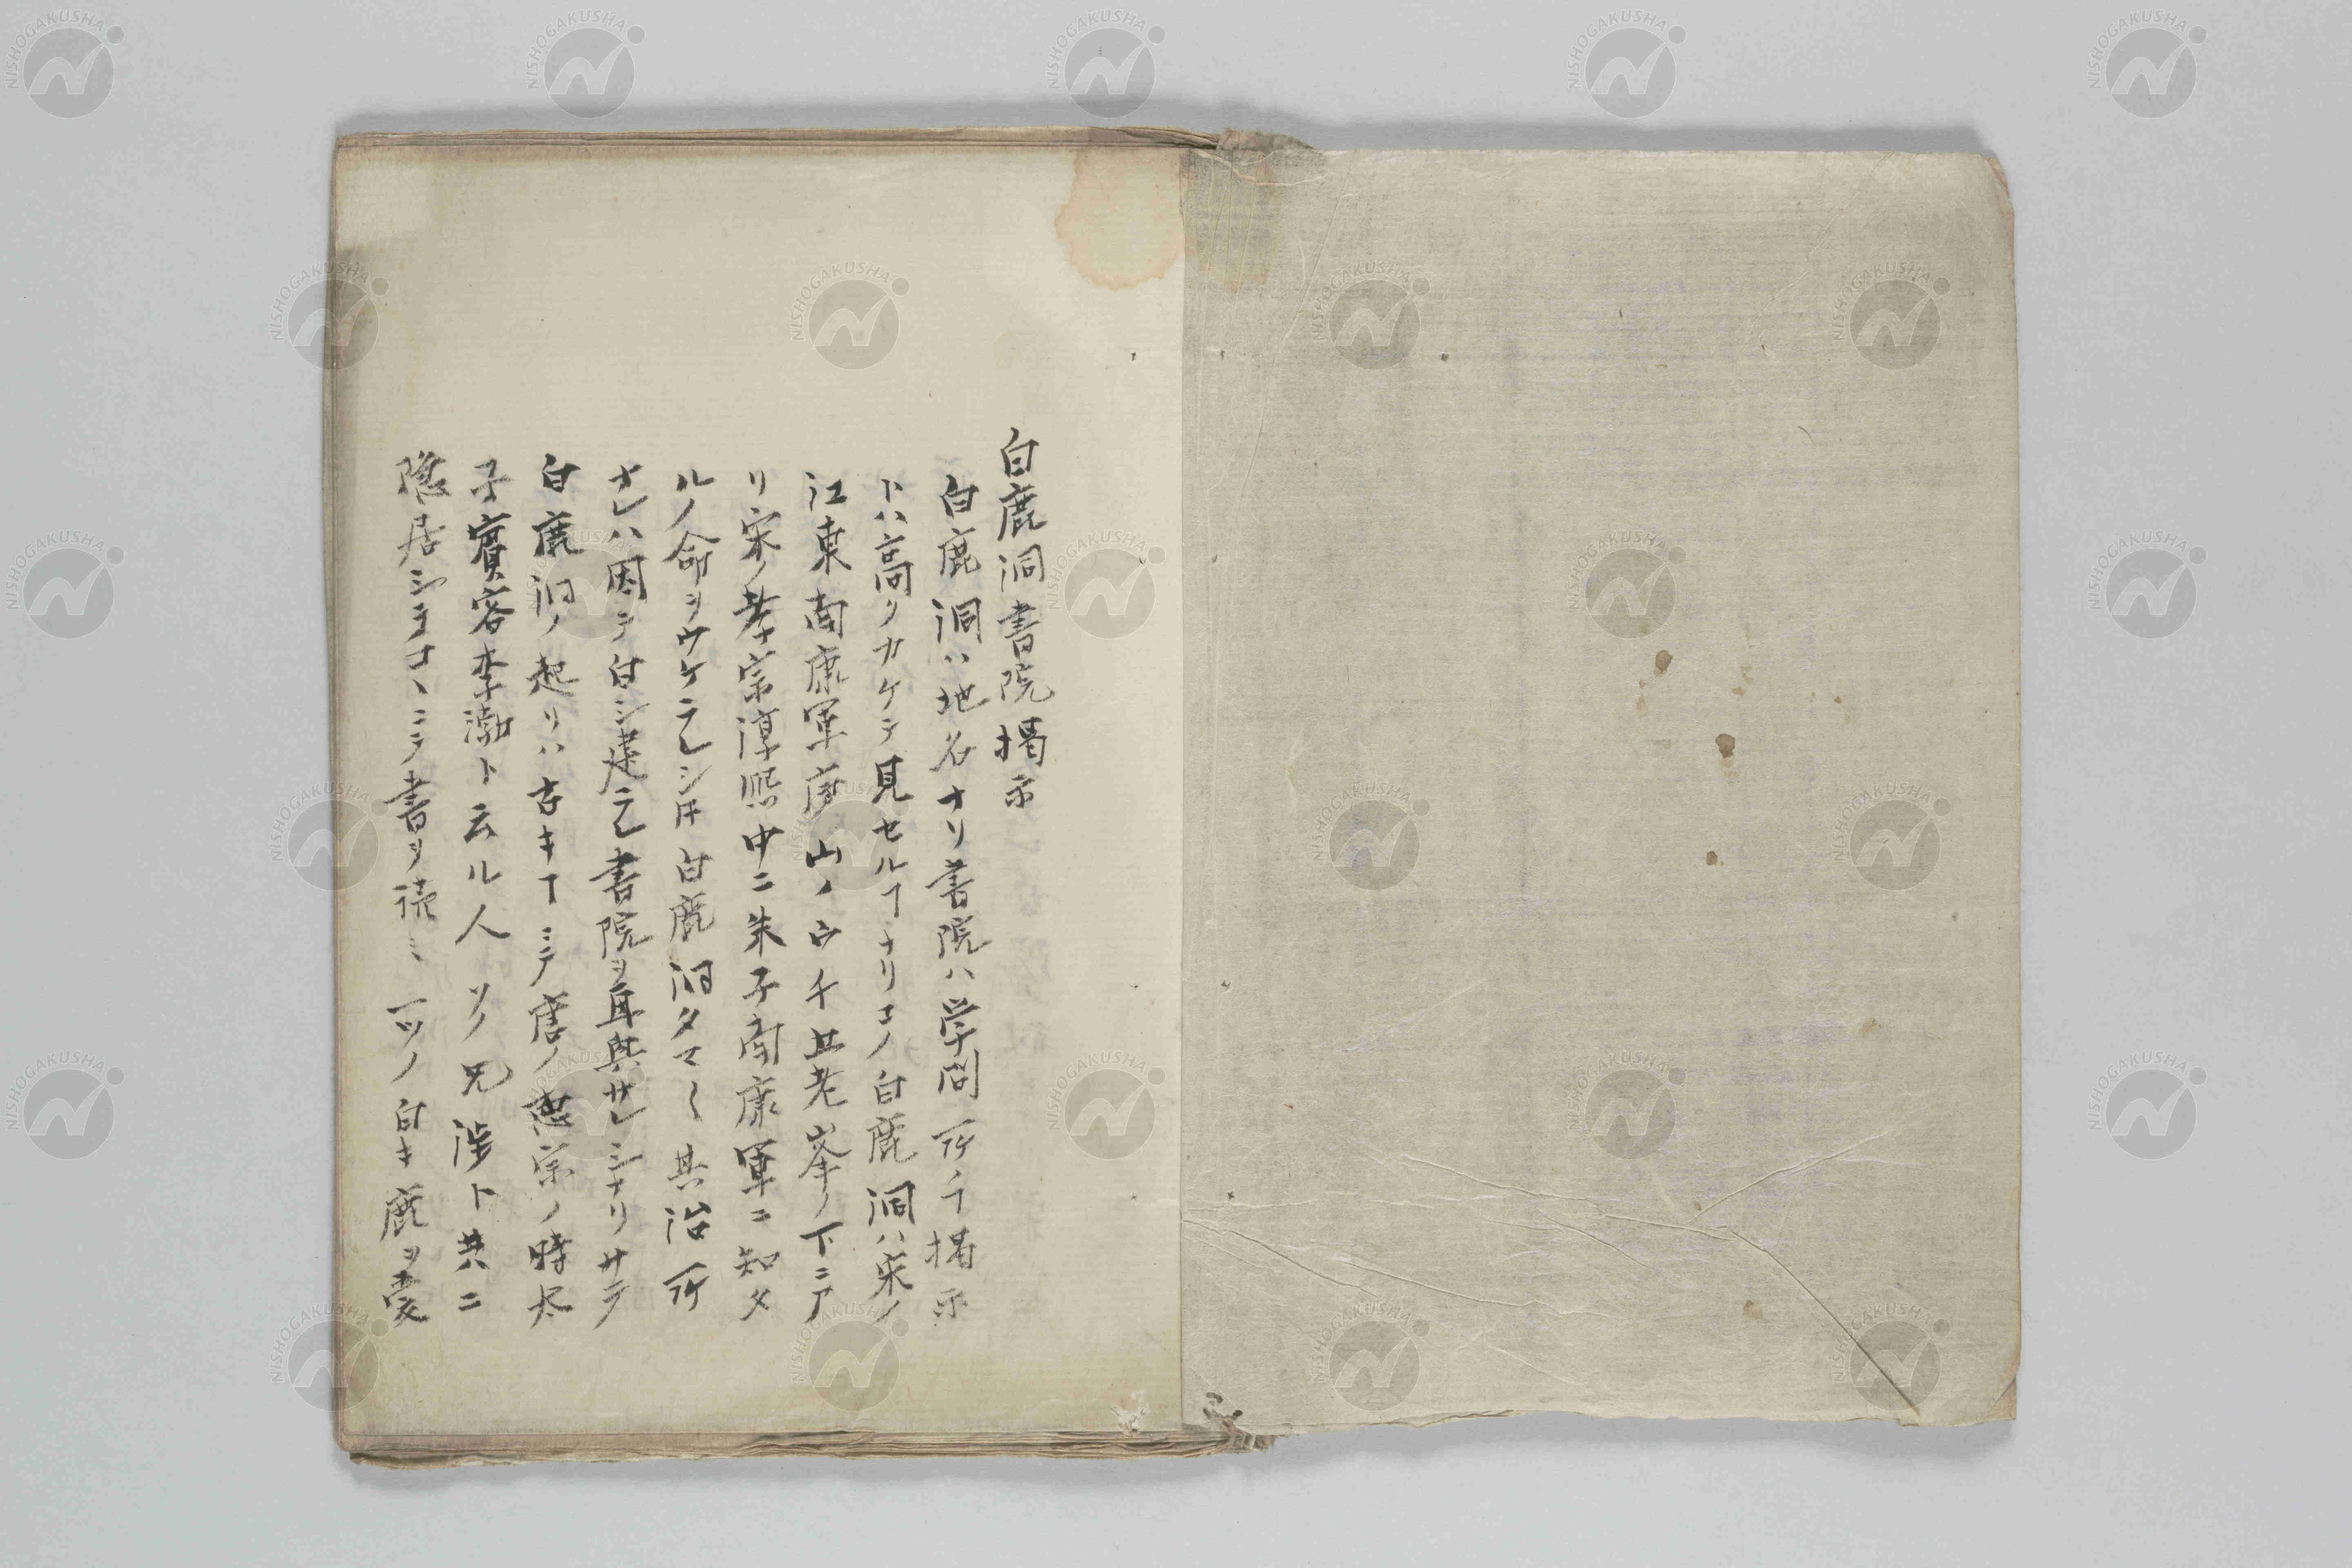 白鹿洞書院揭示
白鹿洞ハ地名ナリ書院ハ学問所ノヿ揭示
トハ高クカケテ見セルヿナリコノ白鹿洞ハ宋ノ
江東南康軍庐山ノウチ五老峯ノ下ニア
リ宋ノ孝宗淳熙中ニ朱子南康軍ニ知タ
ルノ命ヲウケラレシ𪜈白鹿洞タマ〱其治所
ナレハ因テ白シ建ラレ書院ヲ再興サレシナリサテ
白鹿洞ノ起リハ古キヿニテ唐ノ德宗ノ時太
子賓客李渤ト云ル人ソノ兄渉ト共ニ
隠居シテコヽニテ書ヲ読ミ一ツノ白キ鹿ヲ愛
NISHOGAKUSHA